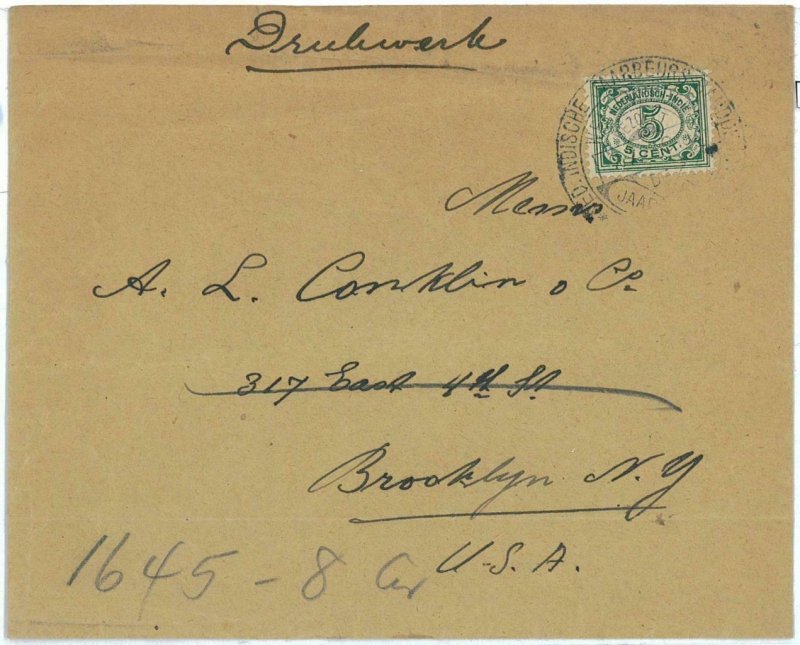 Drukwerk
NED. INDISCHE JAARBEURS
NEDERLANDSCH-INDIE
5
5 CENT.
JAAR
Messrs
A. L. Conklin & Co.
317 East 4th St
Brooklyn N.Y
U.S.A.
1645 - 8